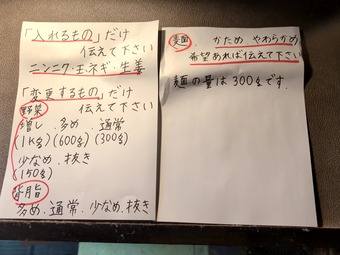 「入れるもの」だけ
伝えて下さい
ニンニク・玉ネギ・生姜
「変更するもの」だけ
野菜 伝えて下さい
増し . 多め . 通常
(1kg) (600g) (300g)
少なめ . 抜き
(150g)
背脂
多め . 通常 . 少なめ . 抜き
麺 かため やわらかめ
希望あれば伝えて下さい
麺の量は300gです.